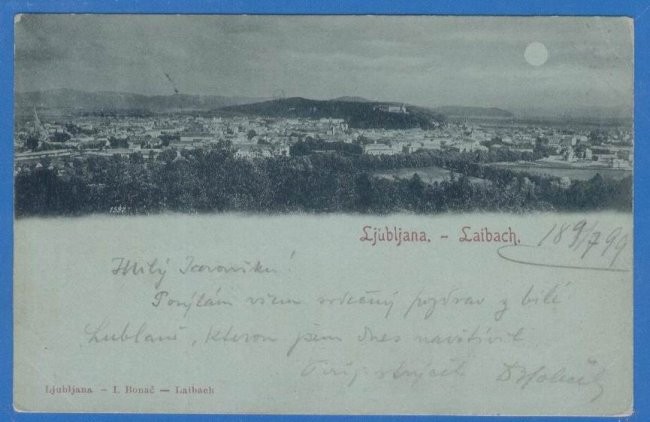 1598
Ljubljana. - Laibach. 189/7 99
Milý
Posýlám všem srdečný pozdrav z bílé
Lublaně, kterou jsem dnes navštívil
Ljubljana - I. Bonač — Laibach